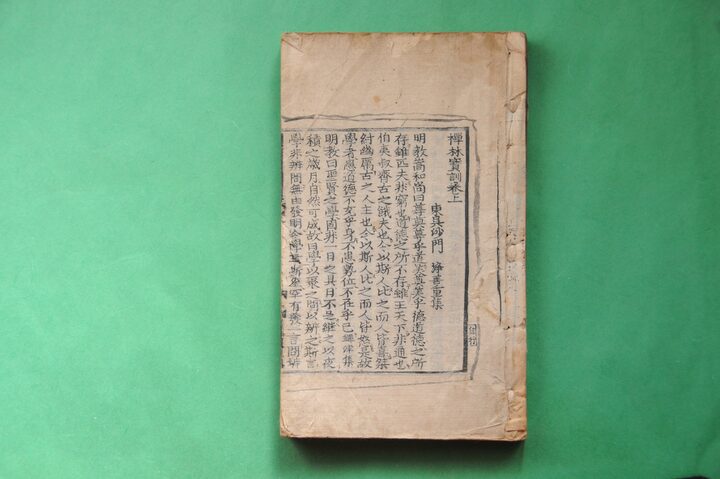 禪林寶訓卷上
東吳沙門　淨善重集
明教嵩和尚曰尊莫尊乎道美莫美乎德道德之所
存雖匹夫非窮也道德之所不存雖王天下非通也
伯夷叔齊古之餓夫也今以斯人比之而人皆喜桀
紂幽厲古之人主也今以斯人比之而人皆怒是故
學者患道德不充乎身不患勢位不在乎己鐔津集
明教曰聖賢之學固非一日之具日不足繼之以夜
積之歲月自然可成故曰學以聚之問以辨之斯言
學非辨問無由發明今學者所至罕有發一言問辨